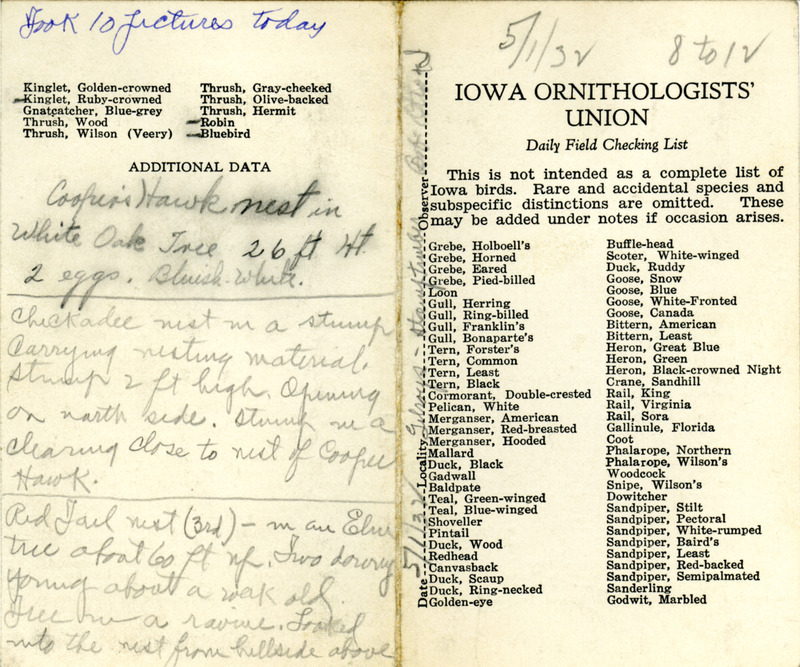 Took 10 pictures today
Kinglet, Golden-crowned
Kinglet, Ruby-crowned
Gnatcatcher, Blue-grey
Thrush, Wood
Thrush, Wilson (Veery)
Thrush, Gray-cheeked
Thrush, Olive-backed
Thrush, Hermit
Robin
Bluebird
ADDITIONAL DATA
Cooper's Hawk nest in
White Oak Tree 26 ft Ht.
2 eggs. Bluish-White.
Chickadee nest in a stump
Carrying nesting material.
Stump 2 ft high. Opening
on north side. Stump in a
clearing close to nest of Cooper
Hawk.
Red Tail nest (3rd) - in an Elm
tree about 60 ft up. Two downy
young about a weak old.
Tree in a ravine. Looked
into the nest from hillside above
5/1/32 8 to 12
IOWA ORNITHOLOGISTS'
UNION
Daily Field Checking List
This is not intended as a complete list of
Iowa birds. Rare and accidental species and
subspecific distinctions are omitted. These
may be added under notes if occasion arises.
Date 5/1/32 Locality Observer
Grebe, Holboell's
Grebe, Horned
Grebe, Eared
Grebe, Pied-billed
Loon
Gull, Herring
Gull, Ring-billed
Gull, Franklin's
Gull, Bonaparte's
Tern, Forster's
Tern, Common
Tern, Least
Tern, Black
Cormorant, Double-crested
Pelican, White
Merganser, American
Merganser, Red-breasted
Merganser, Hooded
Mallard
Duck, Black
Gadwall
Baldpate
Teal, Green-winged
Teal, Blue-winged
Shoveller
Pintail
Duck, Wood
Redhead
Canvasback
Duck, Scaup
Duck, Ring-necked
Golden-eye
Buffle-head
Scoter, White-winged
Duck, Ruddy
Goose, Snow
Goose, Blue
Goose, White-Fronted
Goose, Canada
Bittern, American
Bittern, Least
Heron, Great Blue
Heron, Green
Heron, Black-crowned Night
Crane, Sandhill
Rail, King
Rail, Virginia
Rail, Sora
Gallinule, Florida
Coot
Phalarope, Northern
Phalarope, Wilson's
Woodcock
Snipe, Wilson's
Dowitcher
Sandpiper, Stilt
Sandpiper, Pectoral
Sandpiper, White-rumped
Sandpiper, Baird's
Sandpiper, Least
Sandpiper, Red-backed
Sandpiper, Semipalmated
Sanderling
Godwit, Marbled